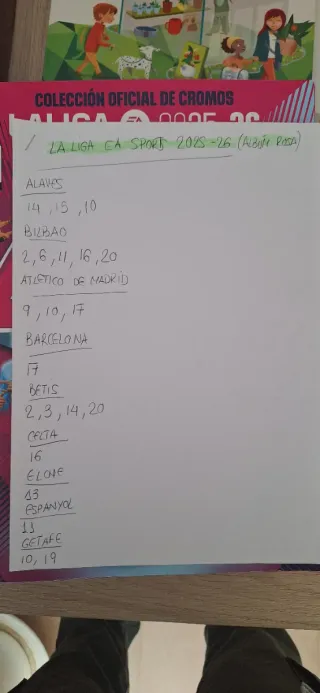 COLECCIÓN OFICIAL DE CROMOS
LALIGA EA 2025-26
LA LIGA EA SPORTS 2025-26 (ALBUM ROSA)
ALAVES
14, 15, 10
BILBAO
2, 6, 11, 16, 20
ATLETICO DE MADRID
9, 10, 17
BARCELONA
17
BETIS
2, 3, 14, 20
CELTA
16
ELCHE
13
ESPANYOL
11
GETAFE
10, 19